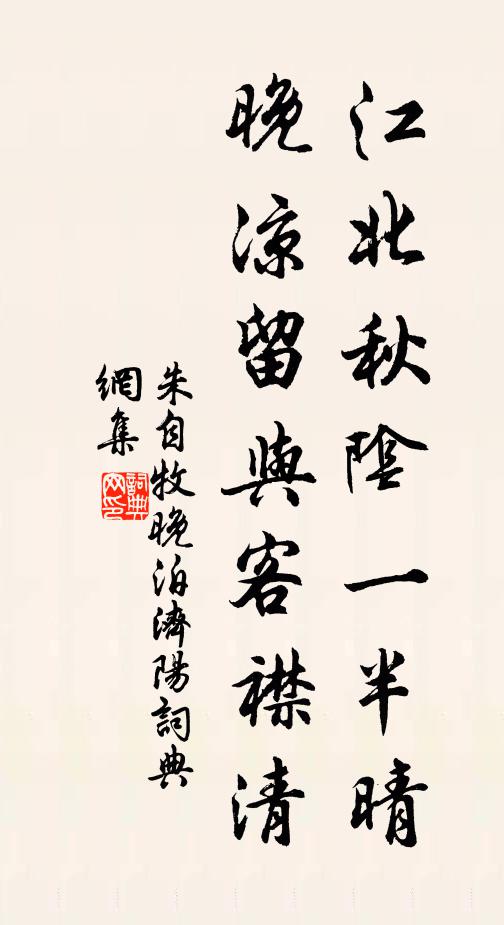 江北秋陰一半晴
晚涼留與客襟清
朱自牧晚泊濟陽詞典
網集
詞典
网印